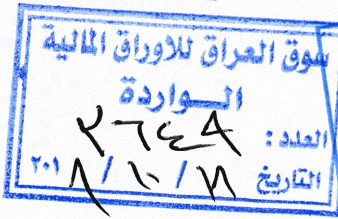 سوق العراق للاوراق المالية
الـواردة
العدد : ٢٦٤٩
التاريخ ٢٠١٨/١٠/